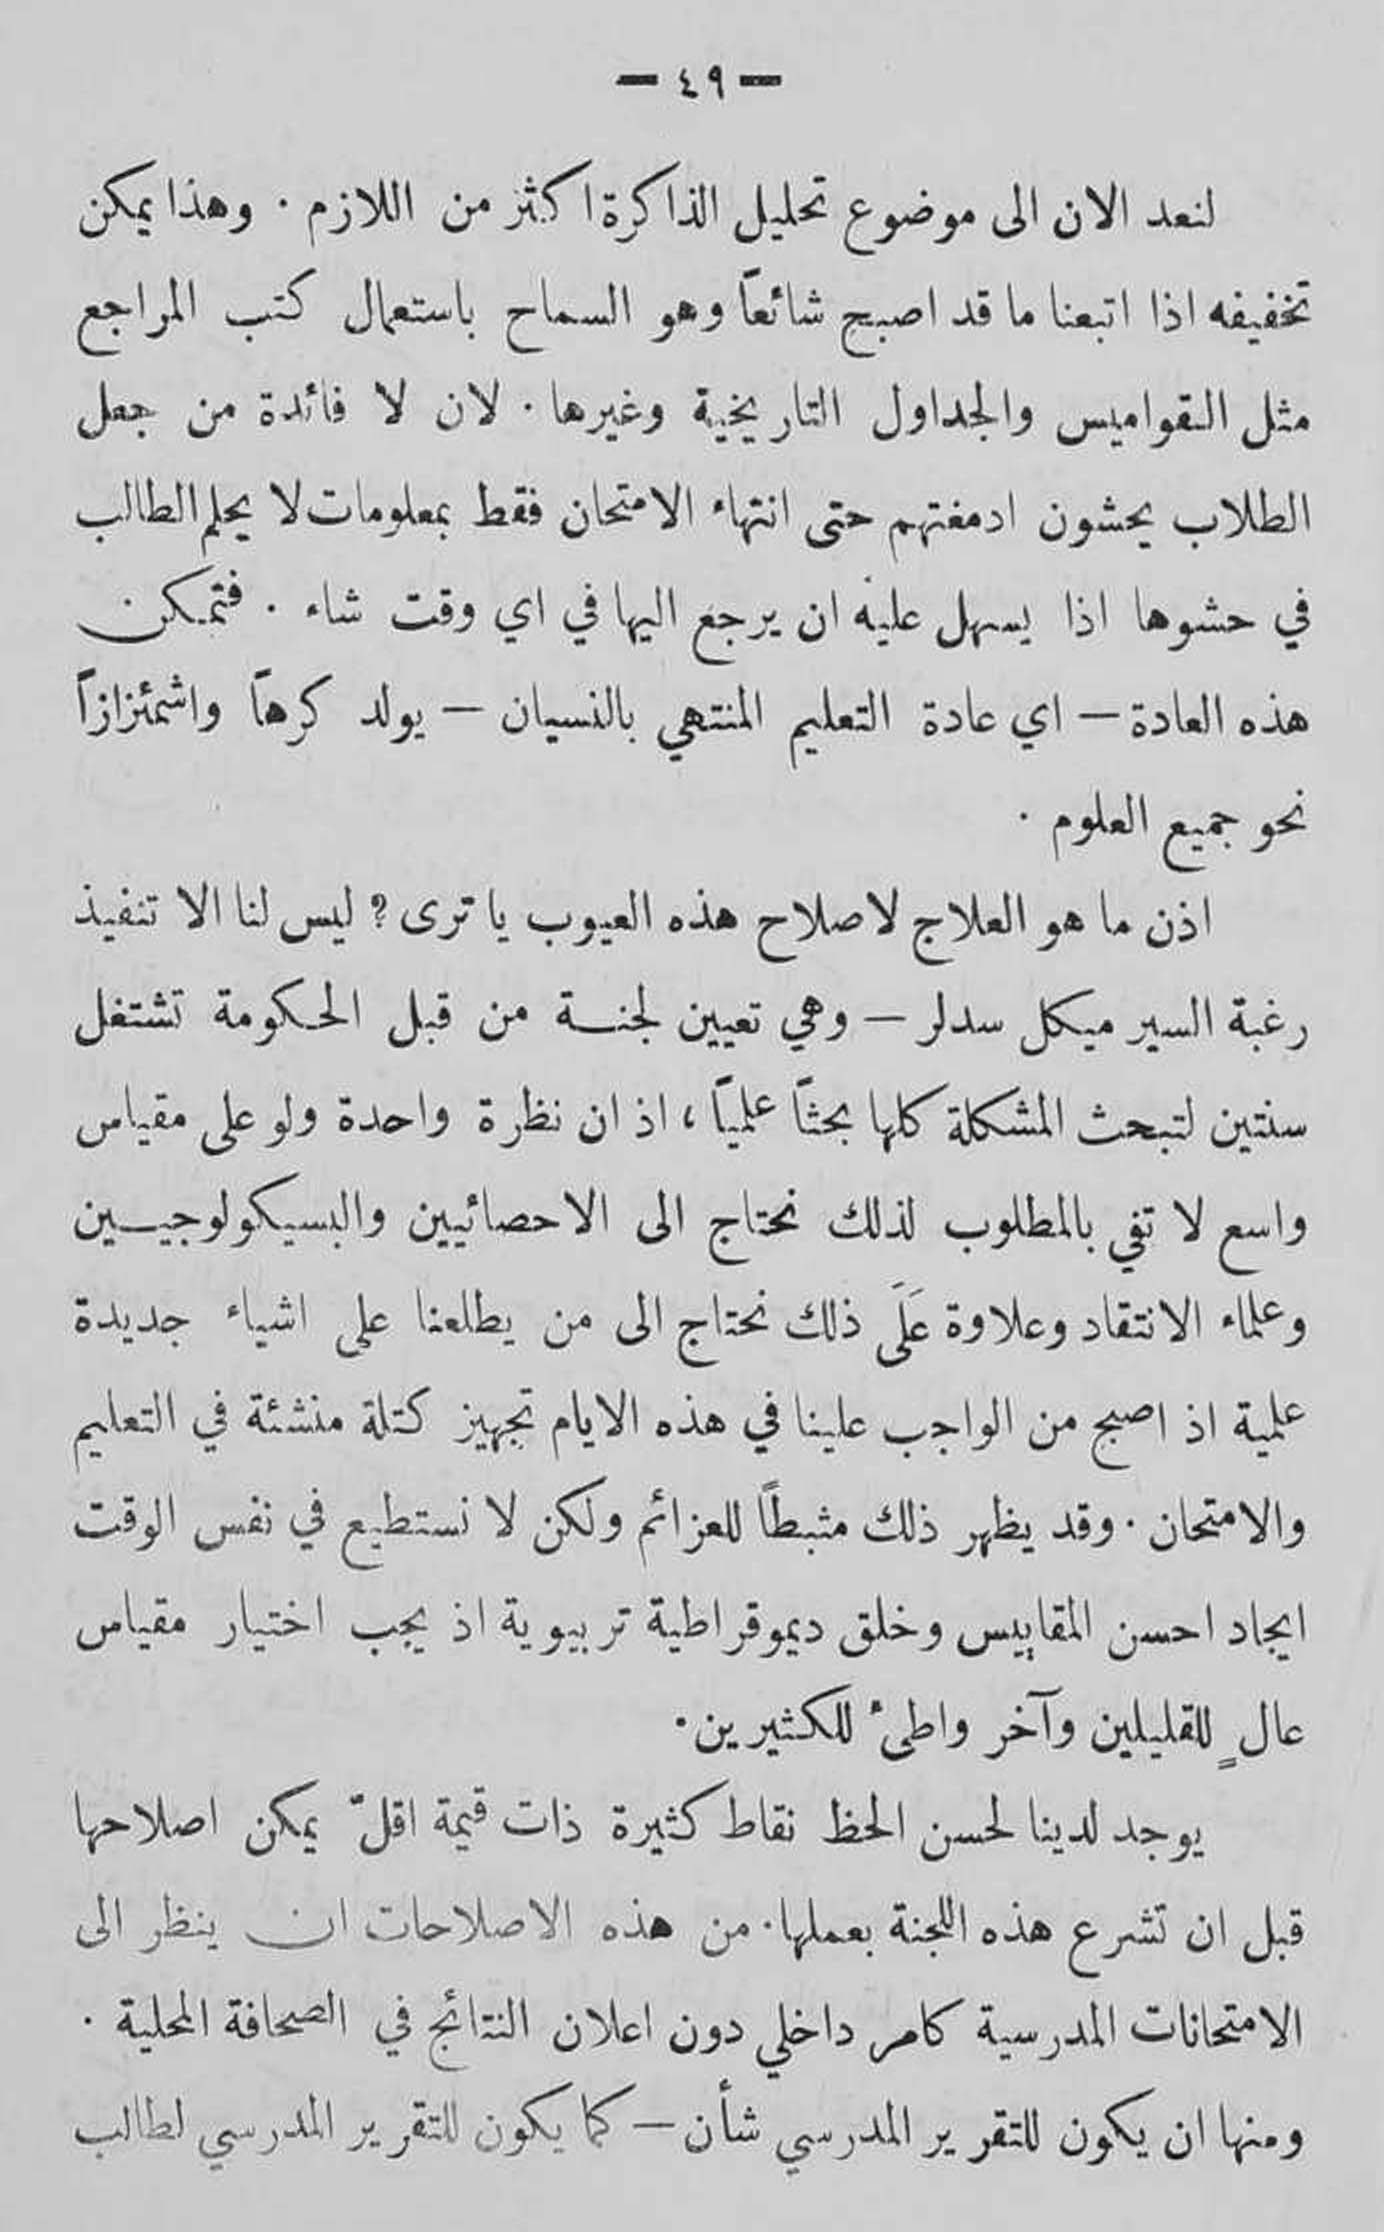 — ٤٩ —
لنعد الان الى موضوع تحليل الذاكرة اكثر من اللازم . وهذا يمكن
تخفيفه اذا اتبعنا ما قد اصبح شائعاً وهو السماح باستعمال كتب المراجع
مثل القواميس والجداول التاريخية وغيرها . لان لا فائدة من جعل
الطلاب يحشون ادمغتهم حتى انتهاء الامتحان فقط بمعلومات لا يحلم الطالب
في حشوها اذا يسهل عليه ان يرجع اليها في اي وقت شاء . فتمكن
هذه العادة — اي عادة التعليم المنتهي بالنسيان — يولد كرهاً واشمئزازاً
نحو جميع العلوم .
اذن ما هو العلاج لاصلاح هذه العيوب يا ترى ؟ ليس لنا الا تنفيذ
رغبة السير ميكل سدلر — وهي تعيين لجنة من قبل الحكومة تشتغل
سنتين لتبحث المشكلة كلها بحثاً علمياً ، اذ ان نظرة واحدة ولو على مقياس
واسع لا تفي بالمطلوب لذلك نحتاج الى الاحصائيين والبسيكولوجيين
وعلماء الانتقاد وعلاوة عَلَى ذلك نحتاج الى من يطلعنا على اشياء جديدة
علمية اذ اصبح من الواجب علينا في هذه الايام تجهيز كتلة منشئة في التعليم
والامتحان . وقد يظهر ذلك مثبطاً للعزائم ولكن لا نستطيع في نفس الوقت
ايجاد احسن المقاييس وخلق ديموقراطية تربيوية اذ يجب اختيار مقياس
عالٍ للقليلين وآخر واطئ للكثيرين .
يوجد لدينا لحسن الحظ نقاط كثيرة ذات قيمة اقلّ يمكن اصلاحها
قبل ان تشرع هذه اللجنة بعملها . من هذه الاصلاحات ان ينظر الى
الامتحانات المدرسية كامر داخلي دون اعلان النتائج في الصحافة المحلية .
ومنها ان يكون للتقرير المدرسي شأن — كما يكون للتقرير المدرسي لطالب